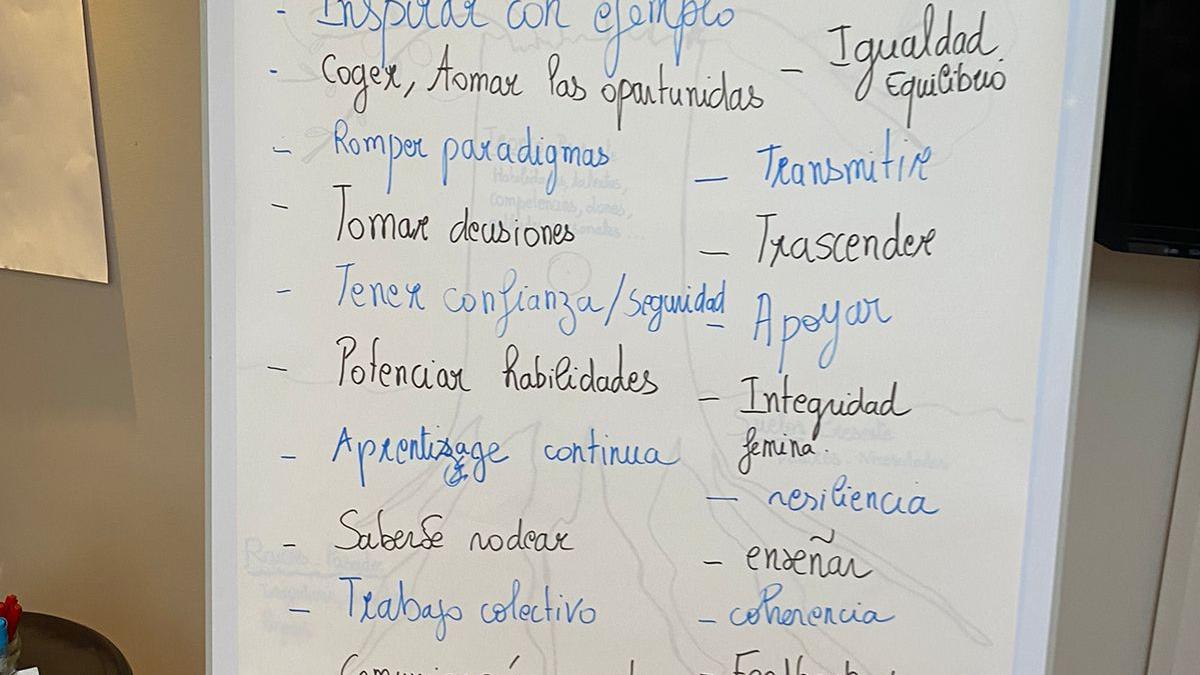 - Inspirar con ejemplo
- Coger, tomar las oportunidas
- Romper paradigmas
- Tomar decisiones
- Tener confianza/seguridad
- Potenciar habilidades
- Aprentizage continua
- Saberse rodear
- Trabajo colectivo
- Igualdad
Equilibrio
- Transmitir
- Trascender
- Apoyar
- Integridad
femina
- resiliencia
- enseñar
- coherencia